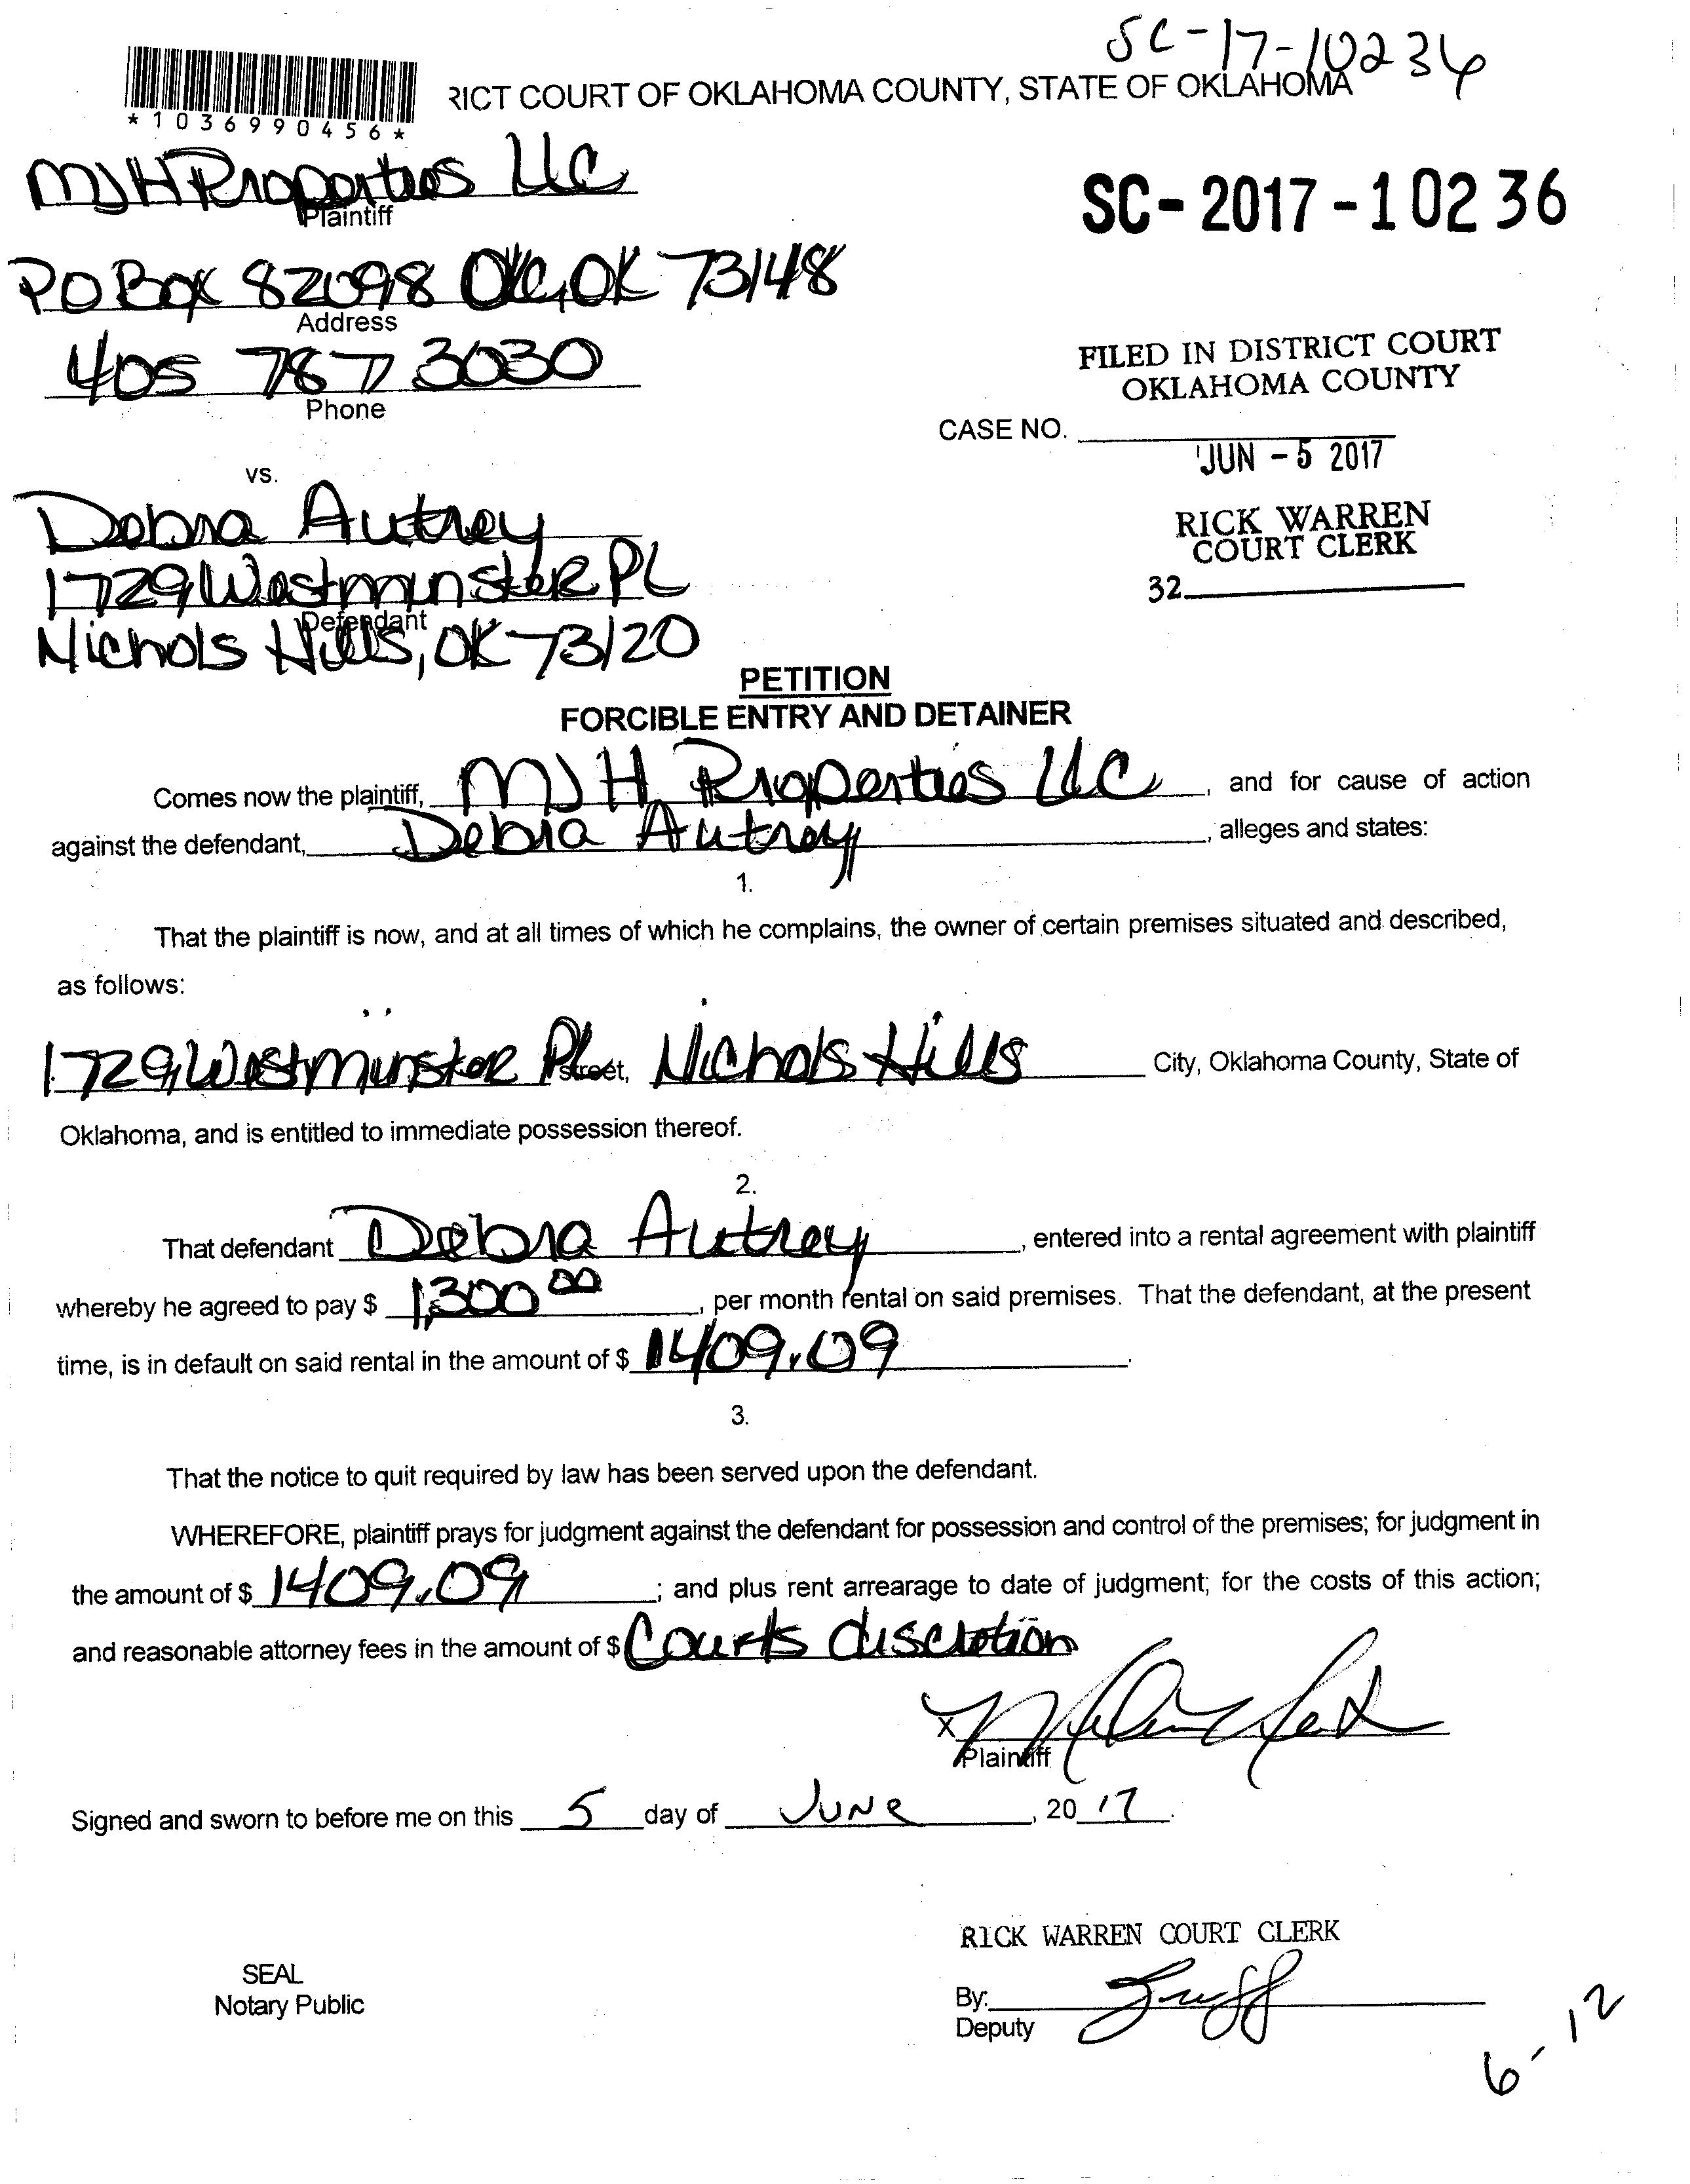 SC-17-10236
*1036990456*
RICT COURT OF OKLAHOMA COUNTY, STATE OF OKLAHOMA
MJH Properties LLC
Plaintiff
SC-2017-10236
PO Box 82098 OKC, OK 73148
Address
405 787 3030
Phone
FILED IN DISTRICT COURT
OKLAHOMA COUNTY
CASE NO.
JUN - 5 2017
vs.
Debra Autrey
RICK WARREN
COURT CLERK
1729 Westminster PL
32
Defendant
Nichols Hills, OK 73120
PETITION
FORCIBLE ENTRY AND DETAINER
Comes now the plaintiff, MJH Properties LLC, and for cause of action
against the defendant, Debra Autrey, alleges and states:
1.
That the plaintiff is now, and at all times of which he complains, the owner of certain premises situated and described,
as follows:
1729 Westminster Pl. Street, Nichols Hills City, Oklahoma County, State of
Oklahoma, and is entitled to immediate possession thereof.
2.
That defendant Debra Autrey, entered into a rental agreement with plaintiff
whereby he agreed to pay $ 1,300 00, per month rental on said premises. That the defendant, at the present
time, is in default on said rental in the amount of $ 1409.09.
3.
That the notice to quit required by law has been served upon the defendant.
WHEREFORE, plaintiff prays for judgment against the defendant for possession and control of the premises; for judgment in
the amount of $ 1409.09; and plus rent arrearage to date of judgment; for the costs of this action;
and reasonable attorney fees in the amount of $ Courts discretion
X
Plaintiff
Signed and sworn to before me on this 5 day of June, 20 17.
RICK WARREN COURT CLERK
SEAL
Notary Public
By:
Deputy
6-12